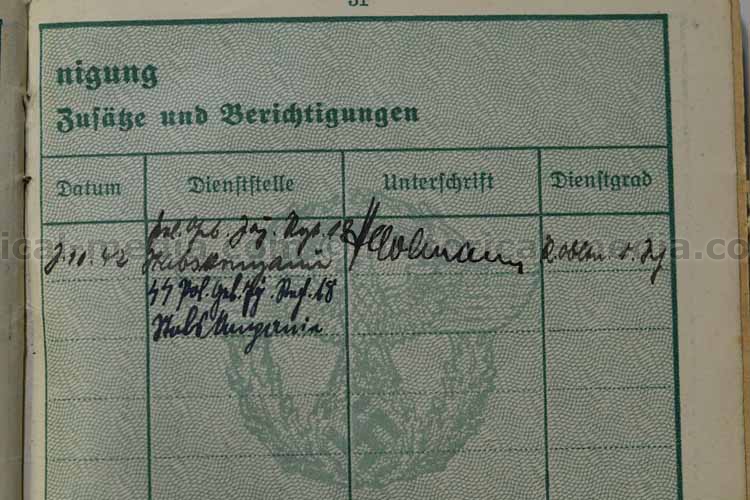 31
nigung
Zusätze und Berichtigungen
Datum Dienststelle Unterschrift Dienstgrad
Pol. Geb. Jäg. Rgt. 18
.11.42 Stabskompanie
SS Pol. Geb. Jg. Regt. 18
Stabskompanie